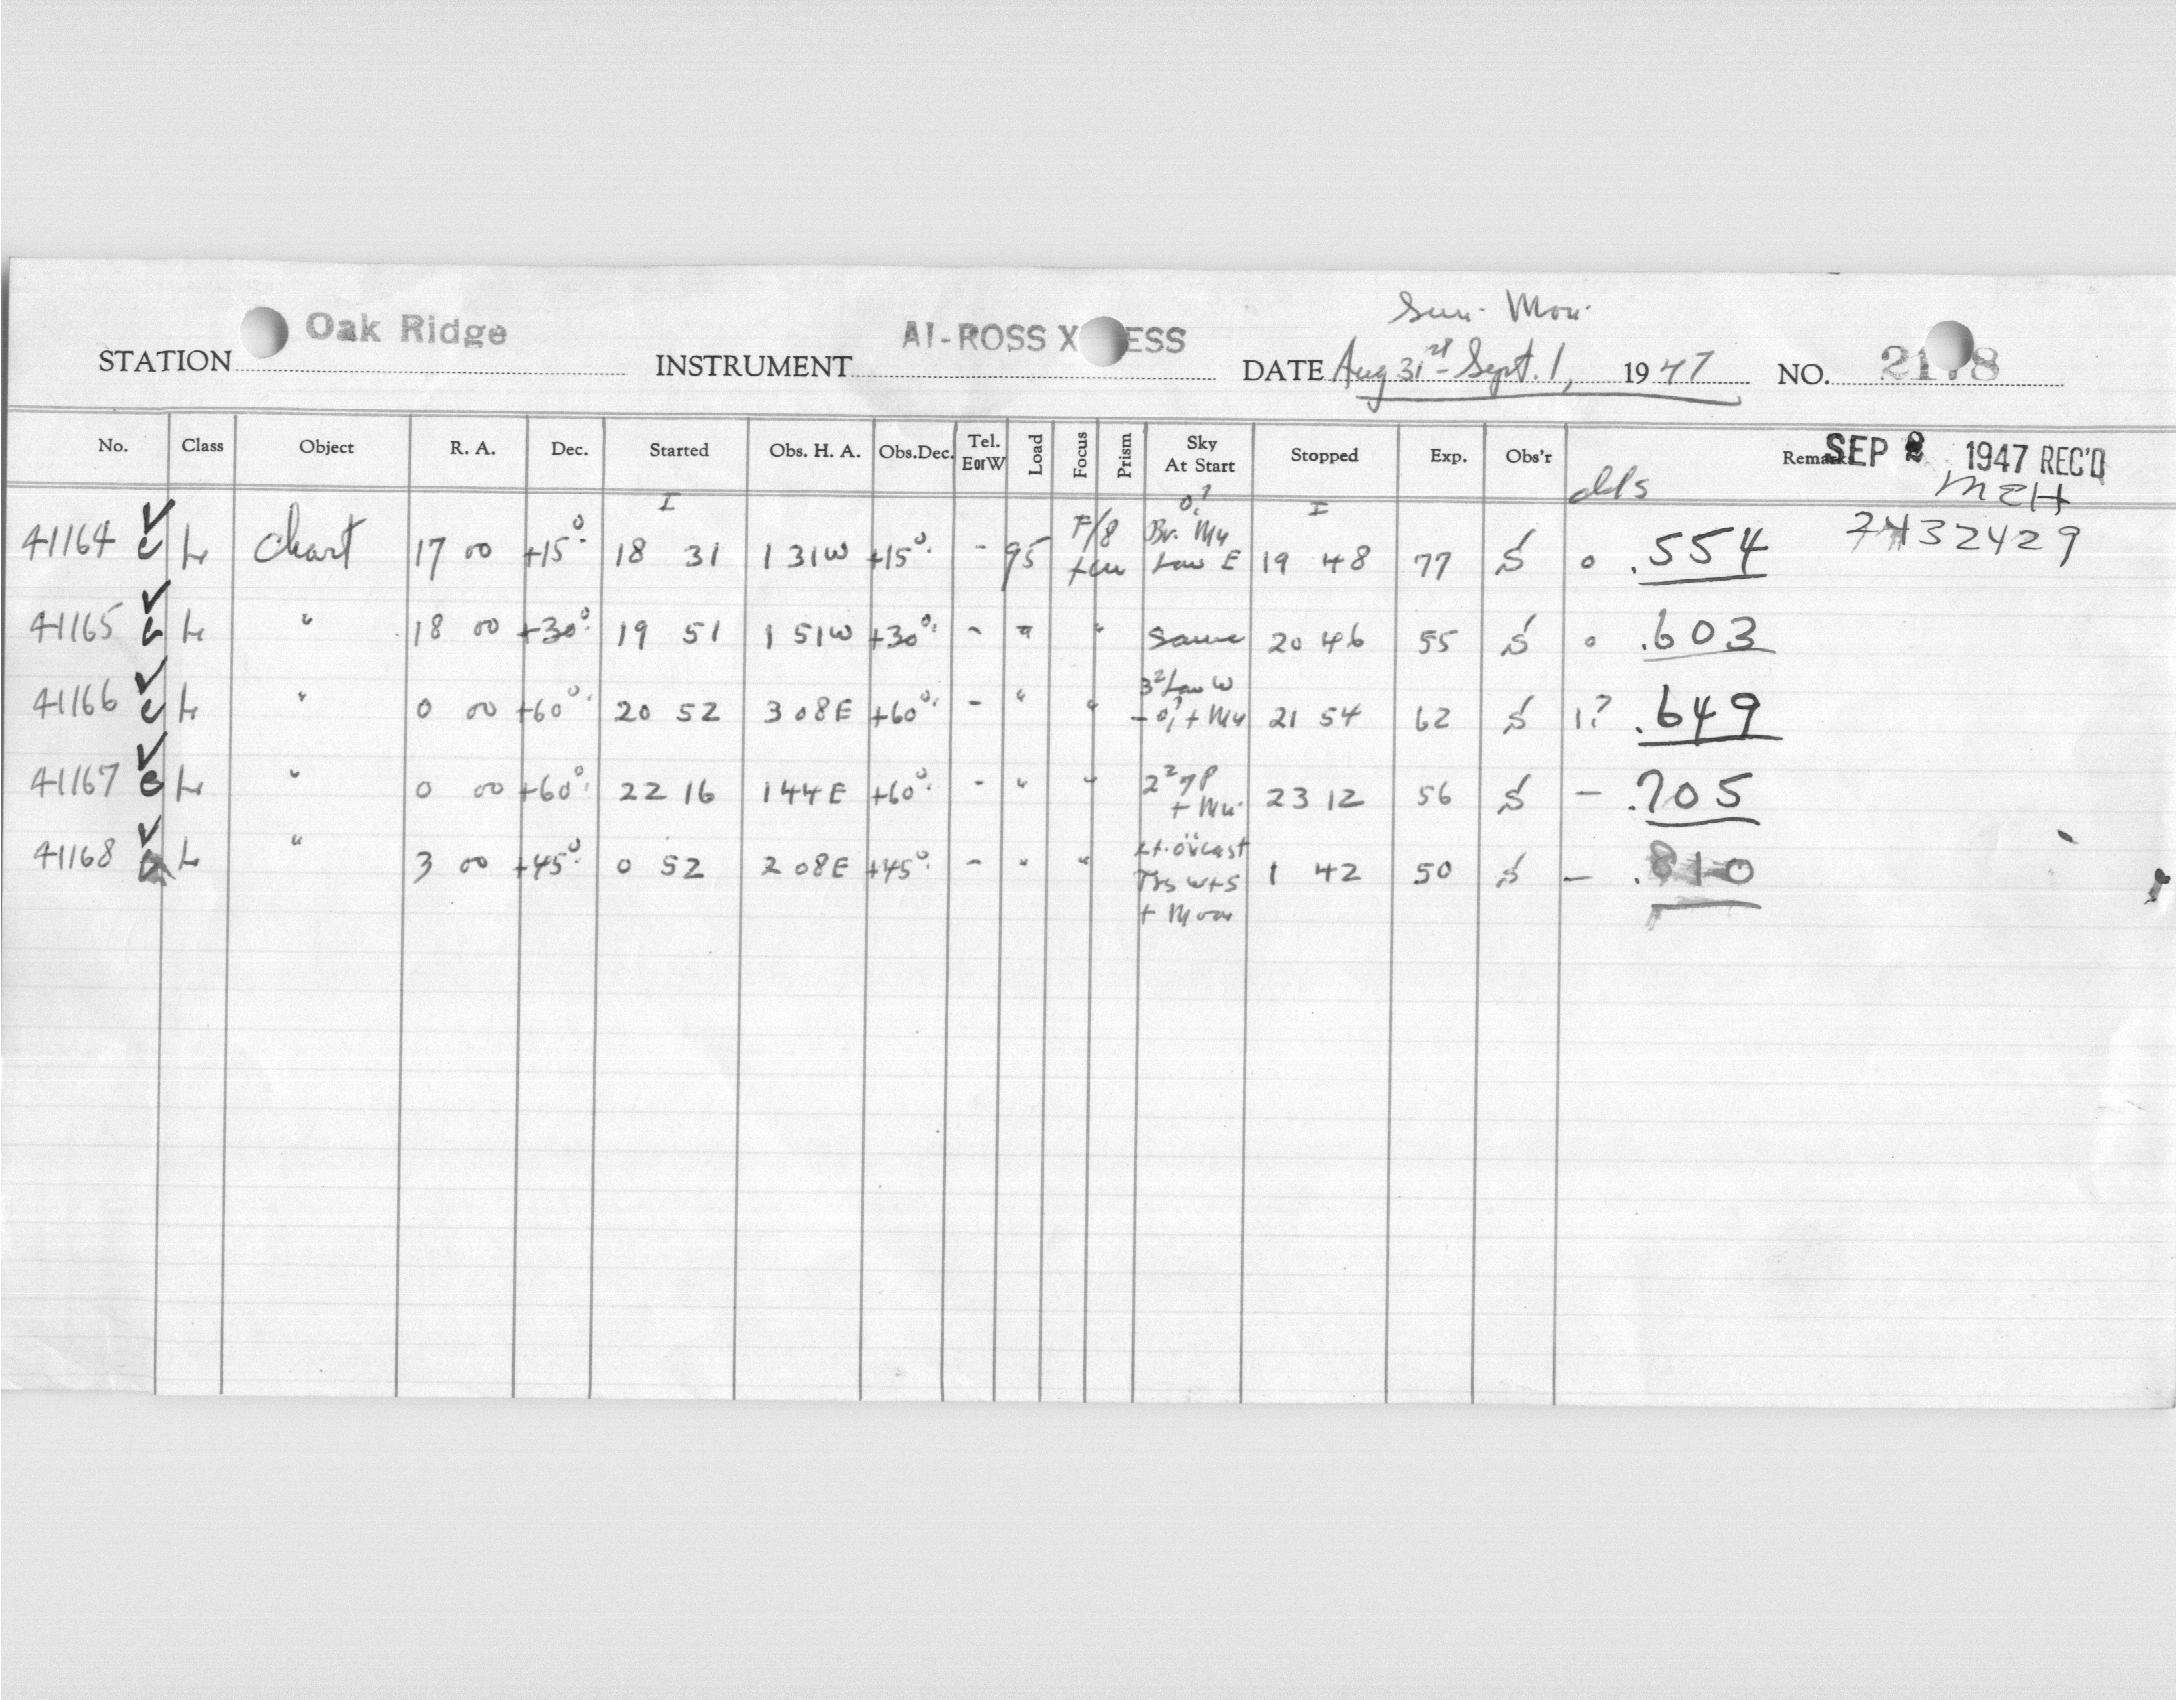 Sun. Mon.
STATION Oak Ridge INSTRUMENT AI-ROSS X ESS DATE Aug 31st - Sept. 1, 1947 NO. 21 8
No. Class Object R. A. Dec. Started Obs. H. A. Obs.Dec. Tel. E or W Load Focus Prism Sky At Start Stopped Exp. Obs'r Remarks SEP 2 1947 REC'D
clds MEH
I I 7432429
41164 L Chart 17 00 +15° 18 31 1 31W +15° - 95 F/8 0? Br. Mn Low E 19 48 77 S 0 .554
41165 L " 18 00 +30° 19 51 1 51W +30° - " " Same 20 46 55 S 0 .603
41166 L " 0 00 +60° 20 52 3 08E +60° - " " 3² Low W - 0? + Mn 21 54 62 S 1? .649
41167 L " 0 00 +60° 22 16 1 44E +60° - " " 2² + Mn. 23 12 56 S - .705
41168 L " 3 00 +45° 0 52 2 08E +45° - " " Lt. ov'cast W+S + Moon 1 42 50 S - .810